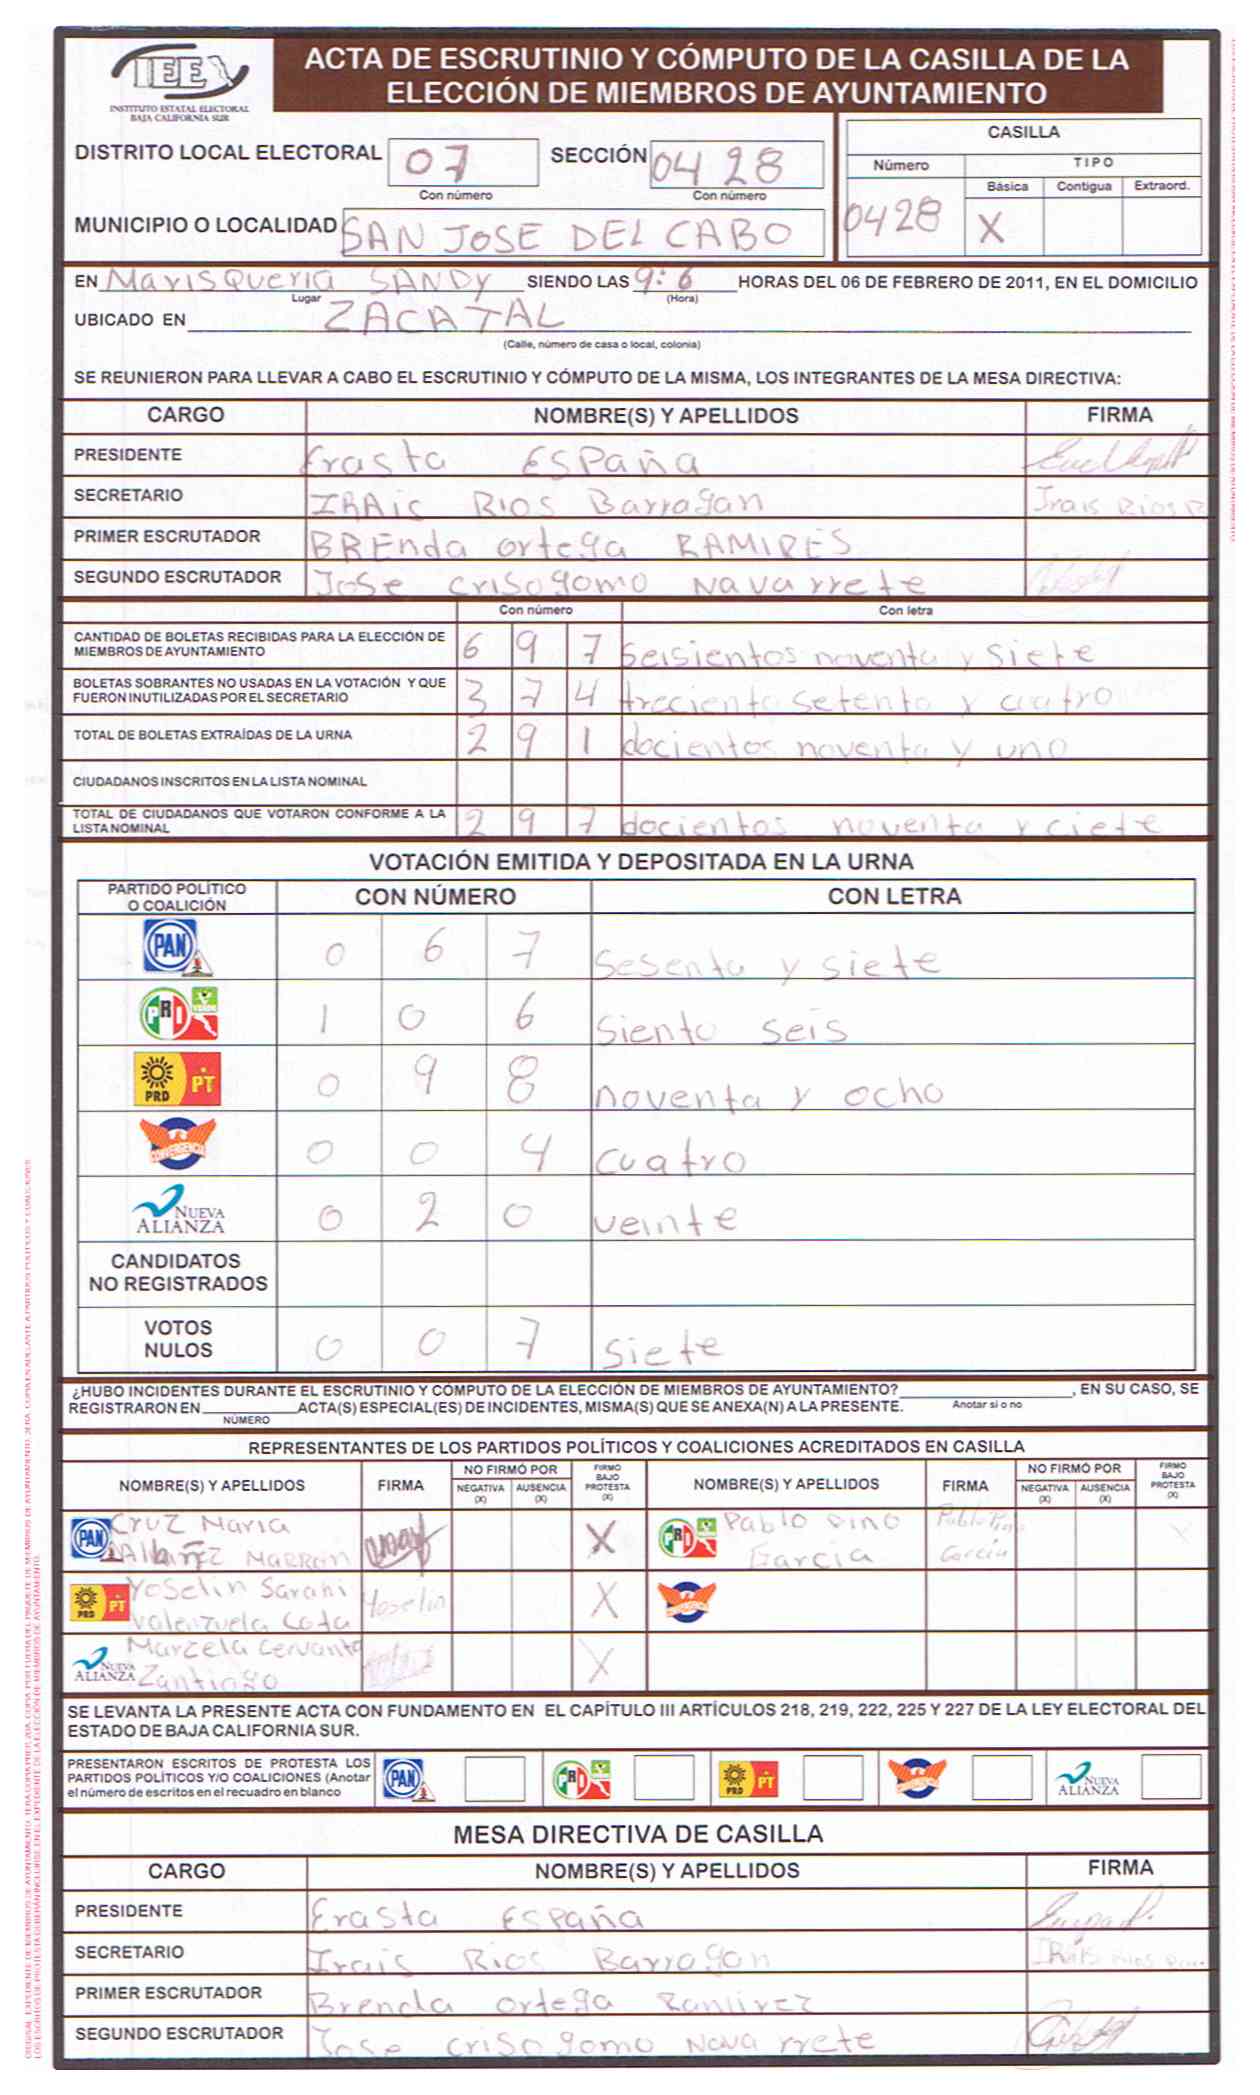 IEE
INSTITUTO ESTATAL ELECTORAL
BAJA CALIFORNIA SUR
ACTA DE ESCRUTINIO Y CÓMPUTO DE LA CASILLA DE LA
ELECCIÓN DE MIEMBROS DE AYUNTAMIENTO
DISTRITO LOCAL ELECTORAL 07 SECCIÓN 0428
Con número Con número
MUNICIPIO O LOCALIDAD SAN JOSE DEL CABO
CASILLA
Número TIPO
Básica Contigua Extraord.
0428 X
EN Marisqueria SANDY SIENDO LAS 9:6 HORAS DEL 06 DE FEBRERO DE 2011, EN EL DOMICILIO
Lugar (Hora)
UBICADO EN ZACATAL
(Calle, número de casa o local, colonia)
SE REUNIERON PARA LLEVAR A CABO EL ESCRUTINIO Y CÓMPUTO DE LA MISMA, LOS INTEGRANTES DE LA MESA DIRECTIVA:
CARGO NOMBRE(S) Y APELLIDOS FIRMA
PRESIDENTE Erasta ESPAña
SECRETARIO IRAic RIOS Barragan Irais Rios R
PRIMER ESCRUTADOR BREnda ortega RAMIRES
SEGUNDO ESCRUTADOR Jose crisogomo Navarrete
Con número Con letra
CANTIDAD DE BOLETAS RECIBIDAS PARA LA ELECCIÓN DE
MIEMBROS DE AYUNTAMIENTO 6 9 7 seisientos noventa y siete
BOLETAS SOBRANTES NO USADAS EN LA VOTACIÓN Y QUE
FUERON INUTILIZADAS POR EL SECRETARIO 3 7 4 treciento setento y cuatro
TOTAL DE BOLETAS EXTRAÍDAS DE LA URNA 2 9 1 docientos noventa y uno
CIUDADANOS INSCRITOS EN LA LISTA NOMINAL
TOTAL DE CIUDADANOS QUE VOTARON CONFORME A LA
LISTA NOMINAL 2 9 7 docientos noventa y ciete
VOTACIÓN EMITIDA Y DEPOSITADA EN LA URNA
PARTIDO POLÍTICO
O COALICIÓN CON NÚMERO CON LETRA
PAN 0 6 7 sesenta y siete
PRI VERDE 1 0 6 siento seis
PRD PT 0 9 8 noventa y ocho
CONVERGENCIA 0 0 4 cuatro
NUEVA ALIANZA 0 2 0 veinte
CANDIDATOS
NO REGISTRADOS
VOTOS
NULOS 0 0 7 siete
¿HUBO INCIDENTES DURANTE EL ESCRUTINIO Y CÓMPUTO DE LA ELECCIÓN DE MIEMBROS DE AYUNTAMIENTO? , EN SU CASO, SE
REGISTRARON EN ACTA(S) ESPECIAL(ES) DE INCIDENTES, MISMA(S) QUE SE ANEXA(N) A LA PRESENTE. Anotar si o no
NÚMERO
REPRESENTANTES DE LOS PARTIDOS POLÍTICOS Y COALICIONES ACREDITADOS EN CASILLA
NOMBRE(S) Y APELLIDOS FIRMA NO FIRMÓ POR NEGATIVA (X) AUSENCIA (X) FIRMO BAJO PROTESTA (X) NOMBRE(S) Y APELLIDOS FIRMA NO FIRMÓ POR NEGATIVA (X) AUSENCIA (X) FIRMO BAJO PROTESTA (X)
PAN Cruz Maria X PRI Pablo Pino Pablo Pino X
Marron Garcia Garcia
PRD PT Yoselin Sarahi Yoselin X
Valenzuela Cota
NUEVA ALIANZA Marcela Cervante X
Zantiago
SE LEVANTA LA PRESENTE ACTA CON FUNDAMENTO EN EL CAPÍTULO III ARTÍCULOS 218, 219, 222, 225 Y 227 DE LA LEY ELECTORAL DEL
ESTADO DE BAJA CALIFORNIA SUR.
PRESENTARON ESCRITOS DE PROTESTA LOS
PARTIDOS POLÍTICOS Y/O COALICIONES (Anotar
el número de escritos en el recuadro en blanco
PAN PRI PRD PT NUEVA ALIANZA
MESA DIRECTIVA DE CASILLA
CARGO NOMBRE(S) Y APELLIDOS FIRMA
PRESIDENTE Erasta ESPAña
SECRETARIO Irais Rios Barragan IRAis Rios
PRIMER ESCRUTADOR Brenda ortega Ramirez
SEGUNDO ESCRUTADOR Jose crisogomo Navarrete